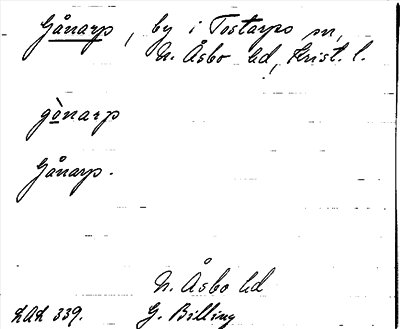 Gånarp, by i Tostarps sn,
N. Åsbo hd, Krist. l.
gònarp
Gånarp.
N. Åsbo hd
LAL 339. G. Billing